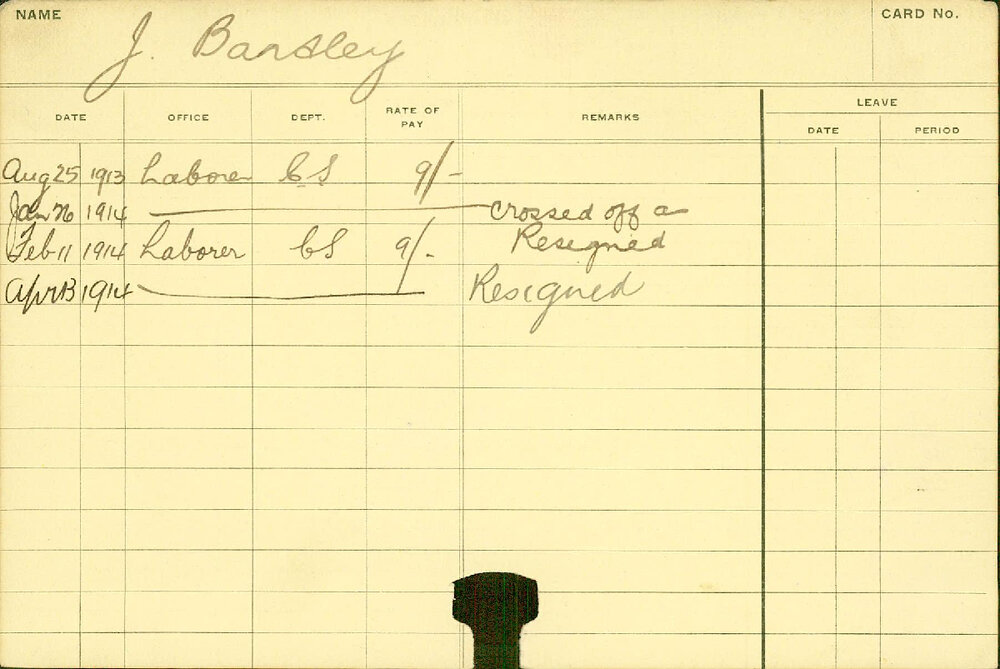 NAME
J. Bansley
CARD No.
DATE OFFICE DEPT. RATE OF PAY REMARKS LEAVE
DATE PERIOD
Aug 25 1913 Laborer CS 9/-
Jan 26 1914 crossed off a
Feb 11 1914 Laborer CS 9/- Resigned
Apr 13 1914 Resigned